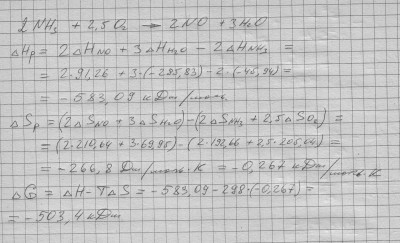 2NH₃ + 2,5O₂ → 2NO + 3H₂O
ΔHр = 2ΔH NO + 3ΔH H₂O − 2ΔH NH₃ =
= 2·91,26 + 3·(−285,83) − 2·(−45,94) =
= −583,09 кДж/моль
ΔSр = (2ΔS NO + 3ΔS H₂O) − (2ΔS NH₃ + 2,5ΔS O₂) =
= (2·210,64 + 3·69,95) − (2·192,66 + 2,5·205,04) =
= −266,8 Дж/моль·К = −0,267 кДж/моль·К
ΔG = ΔH − TΔS = −583,09 − 298·(−0,267) =
= −503,4 кДж